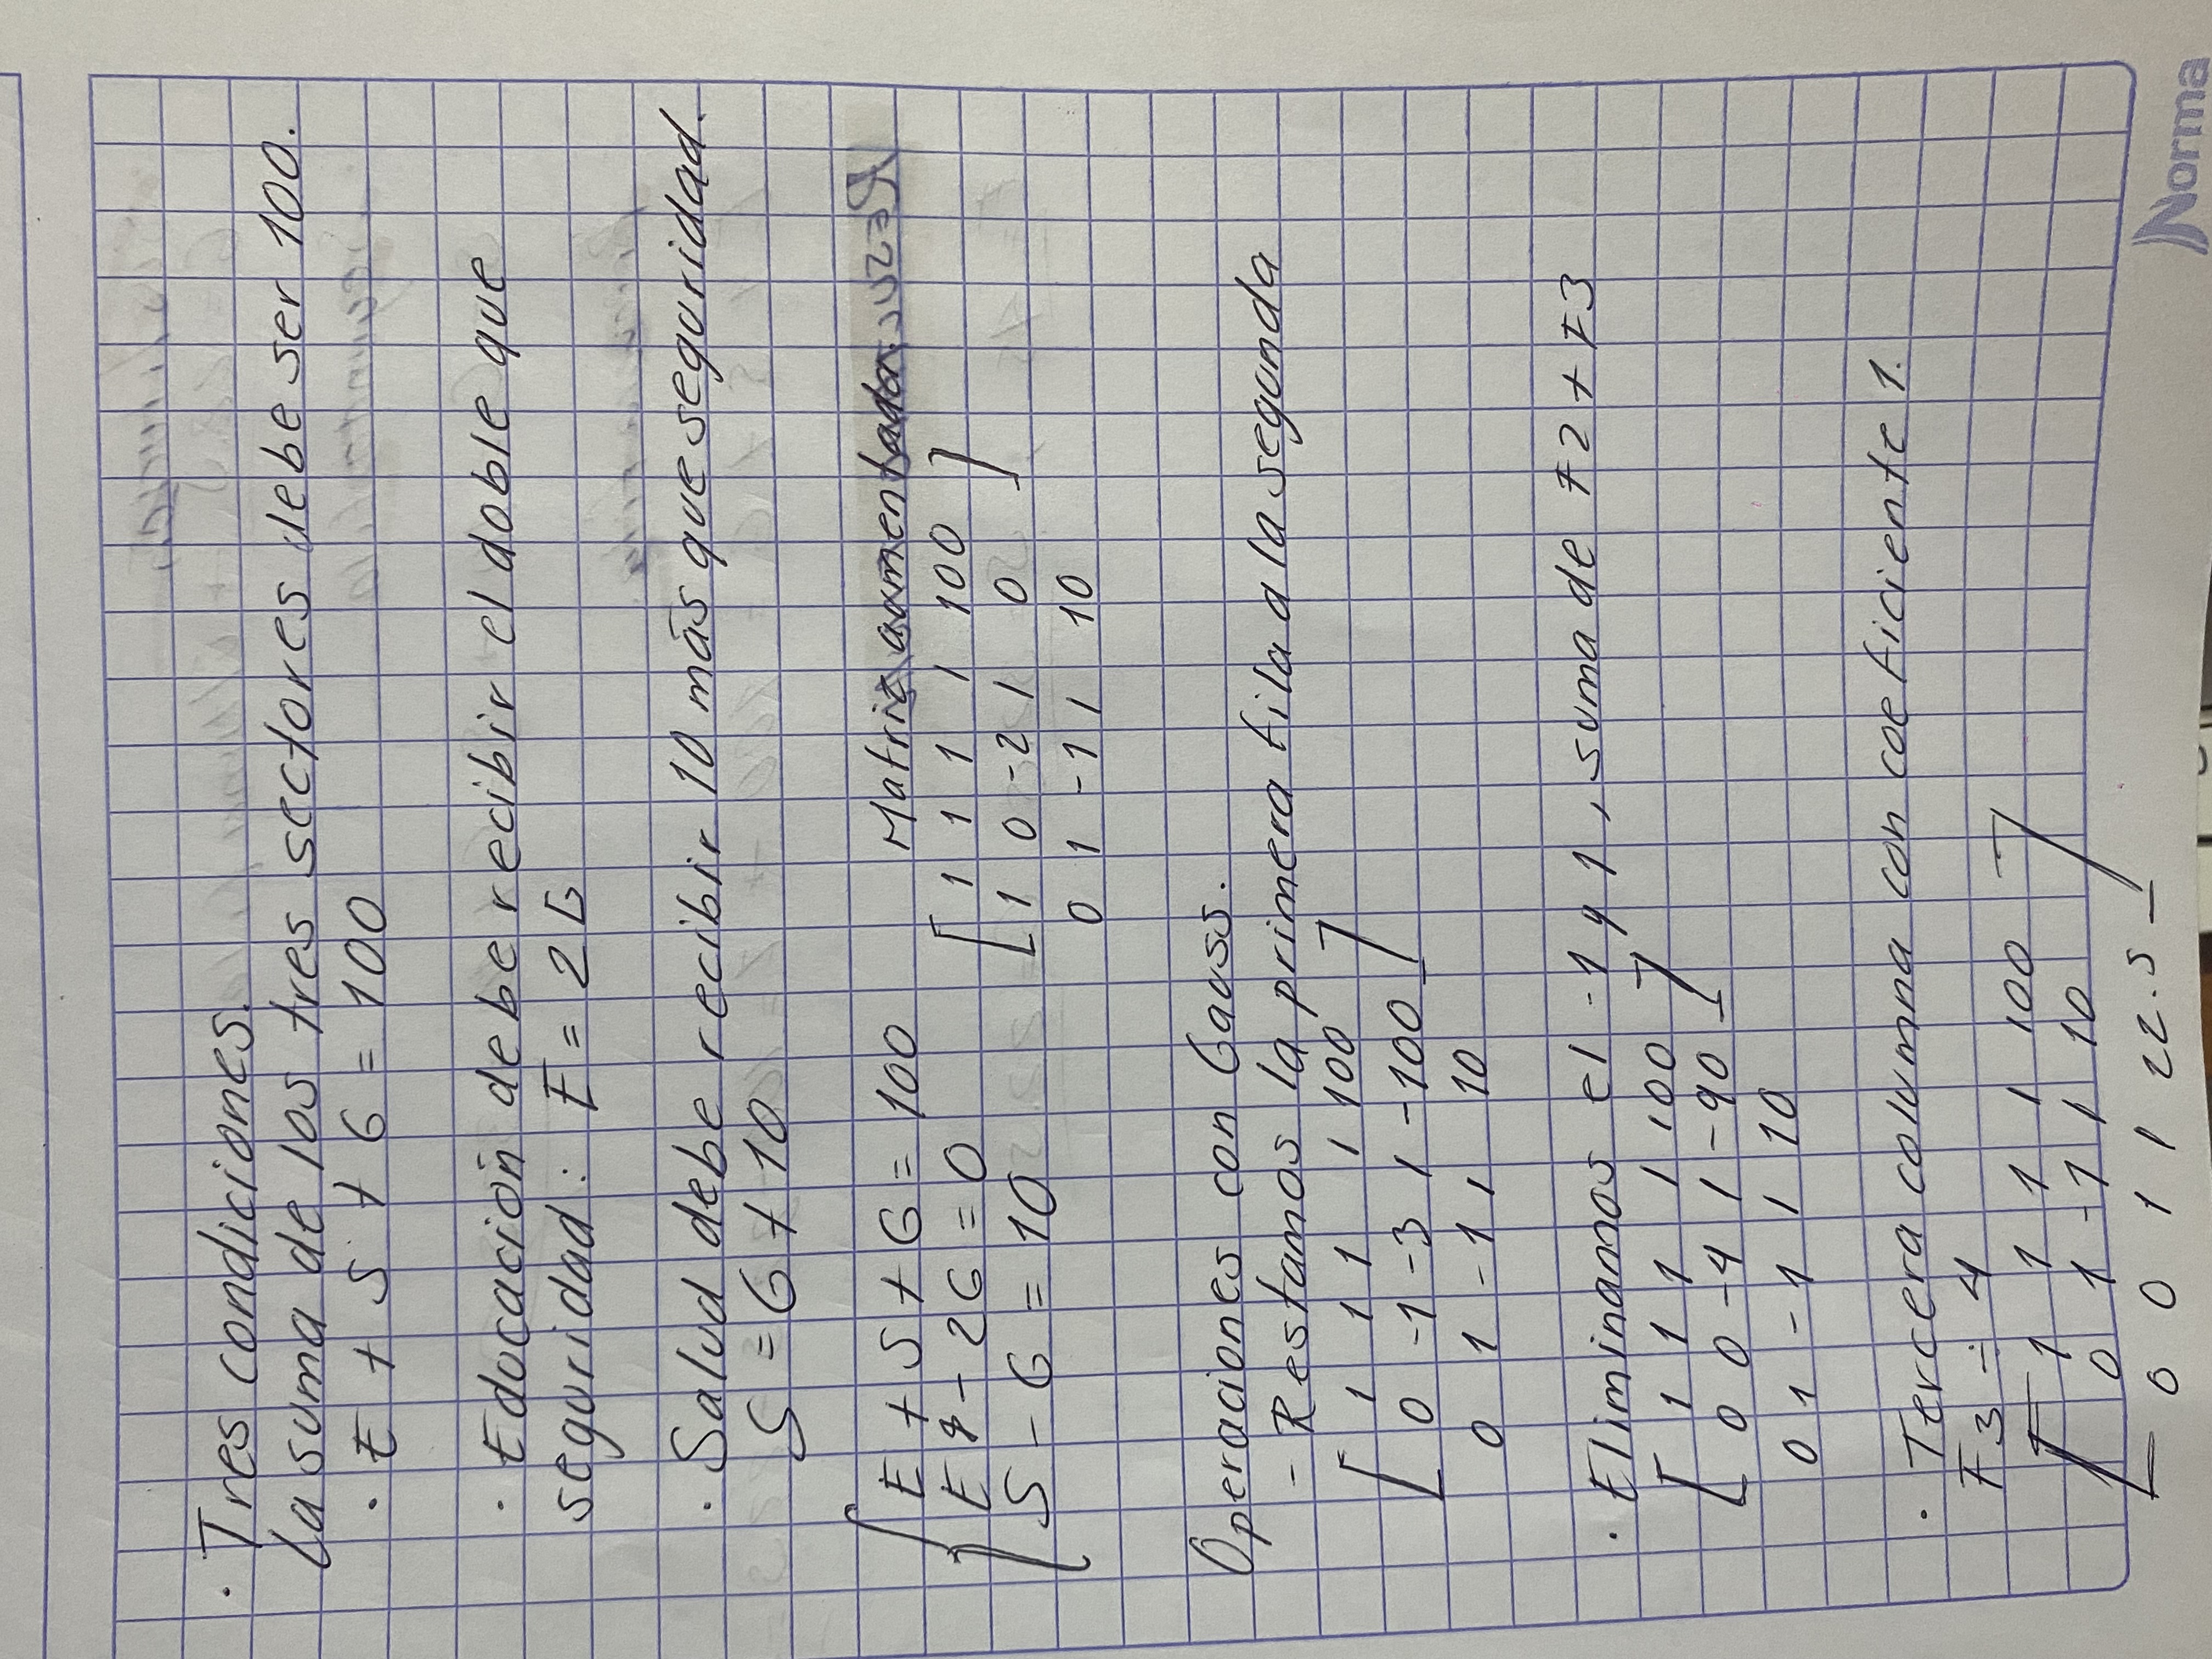 · Tres condiciones.
La suma de los tres sectores debe ser 100.
· E + S + G = 100
· Educación debe recibir el doble que
seguridad: E = 2G
· Salud debe recibir 10 más que seguridad.
S = G + 10
E + S + G = 100
E - 2G = 0
S - G = 10
Matriz aumentada.
[ 1 1 1 | 100 ]
[ 1 0 -2 | 0 ]
0 1 -1 | 10
Operaciones con Gauss.
- Restamos la primera fila a la segunda
[ 1 1 1 | 100 ]
[ 0 -1 -3 | -100 ]
0 1 -1 | 10
· Eliminamos el -1 y 1, suma de F2 + F3
[ 1 1 1 | 100 ]
[ 0 0 -4 | -90 ]
0 1 -1 | 10
· Tercera columna con coeficiente 1.
F3 ÷ 4
[ 1 1 1 | 100 ]
0 1 -1 | 10
[ 0 0 1 | 22.5 ]
Norma